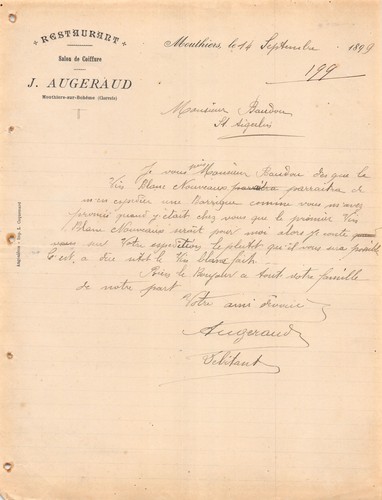 RESTAURANT
Salon de Coiffure
J. AUGERAUD
Mouthiers-sur-Bohëme (Charente)
Mouthiers, le 14 Septembre 1899
199
Monsieur Baudou
St Aigulin
Je vous prie Monsieur Baudou des que le
Vin Blanc Nouveaux paraitra parraitra de
m'en expedier une Barrique comme vous m'avez
promis quand j'etait chez vous que le premier Vin
Blanc Nouveaux serait pour moi alors je conte
sur Votre expedition le plutot qu'il vous sera posible
C'est a dire sitot le Vin blanc fait
Bien le Bonjour a tout votre famille
de notre part
Votre ami devoué
Augeraud
Debitant
Angoulême - Imp. E.